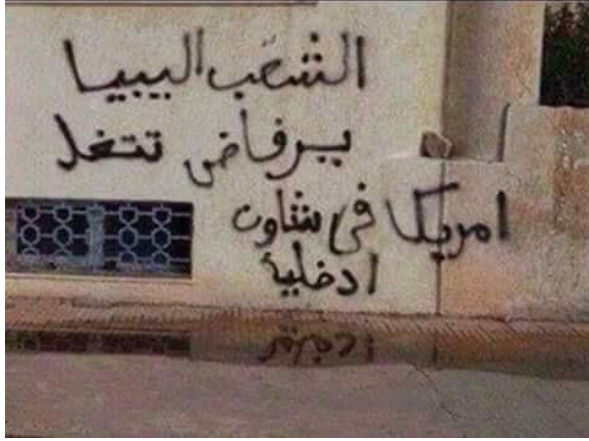 الشعب اليبيا
يرفاض تتغل
امريكا في شاون
ادخلية